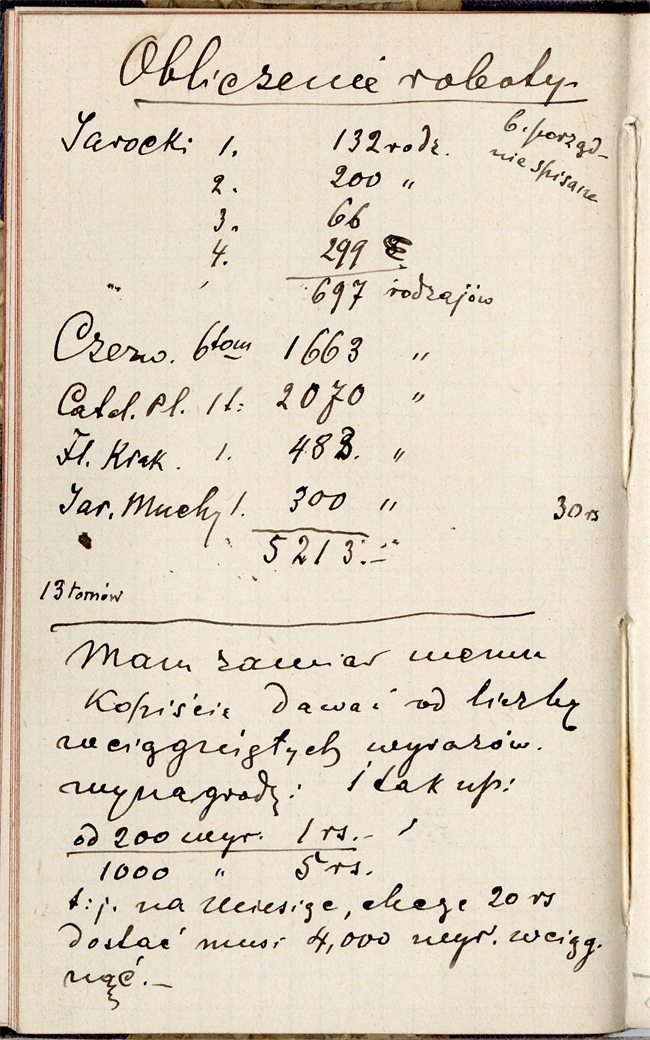 Obliczenie roboty
Jarocki 1. 132 rodz.
b. porząd-
nie spisane
2. 200 "
3. 66
4. 299
" 697 rodzajów
Czerw. 6 tom 1663 "
Catal. Pl. 1 t: 2070 "
Fl. Krak. 1. 483. "
Jar. Muchy 1. 300 " 30 rs
5213.-"
13 tomów
Mam zamiar memu
kopiście dawać od liczby
wciągniętych wyrazów.
wynagrodz: i tak np:
od 200 wyr. 1 rs.-
1000 " 5 rs.
t:j. na miesiąc, chcąc 20 rs
dostać musi 4,000 wyr. wciąg-
nąć.-